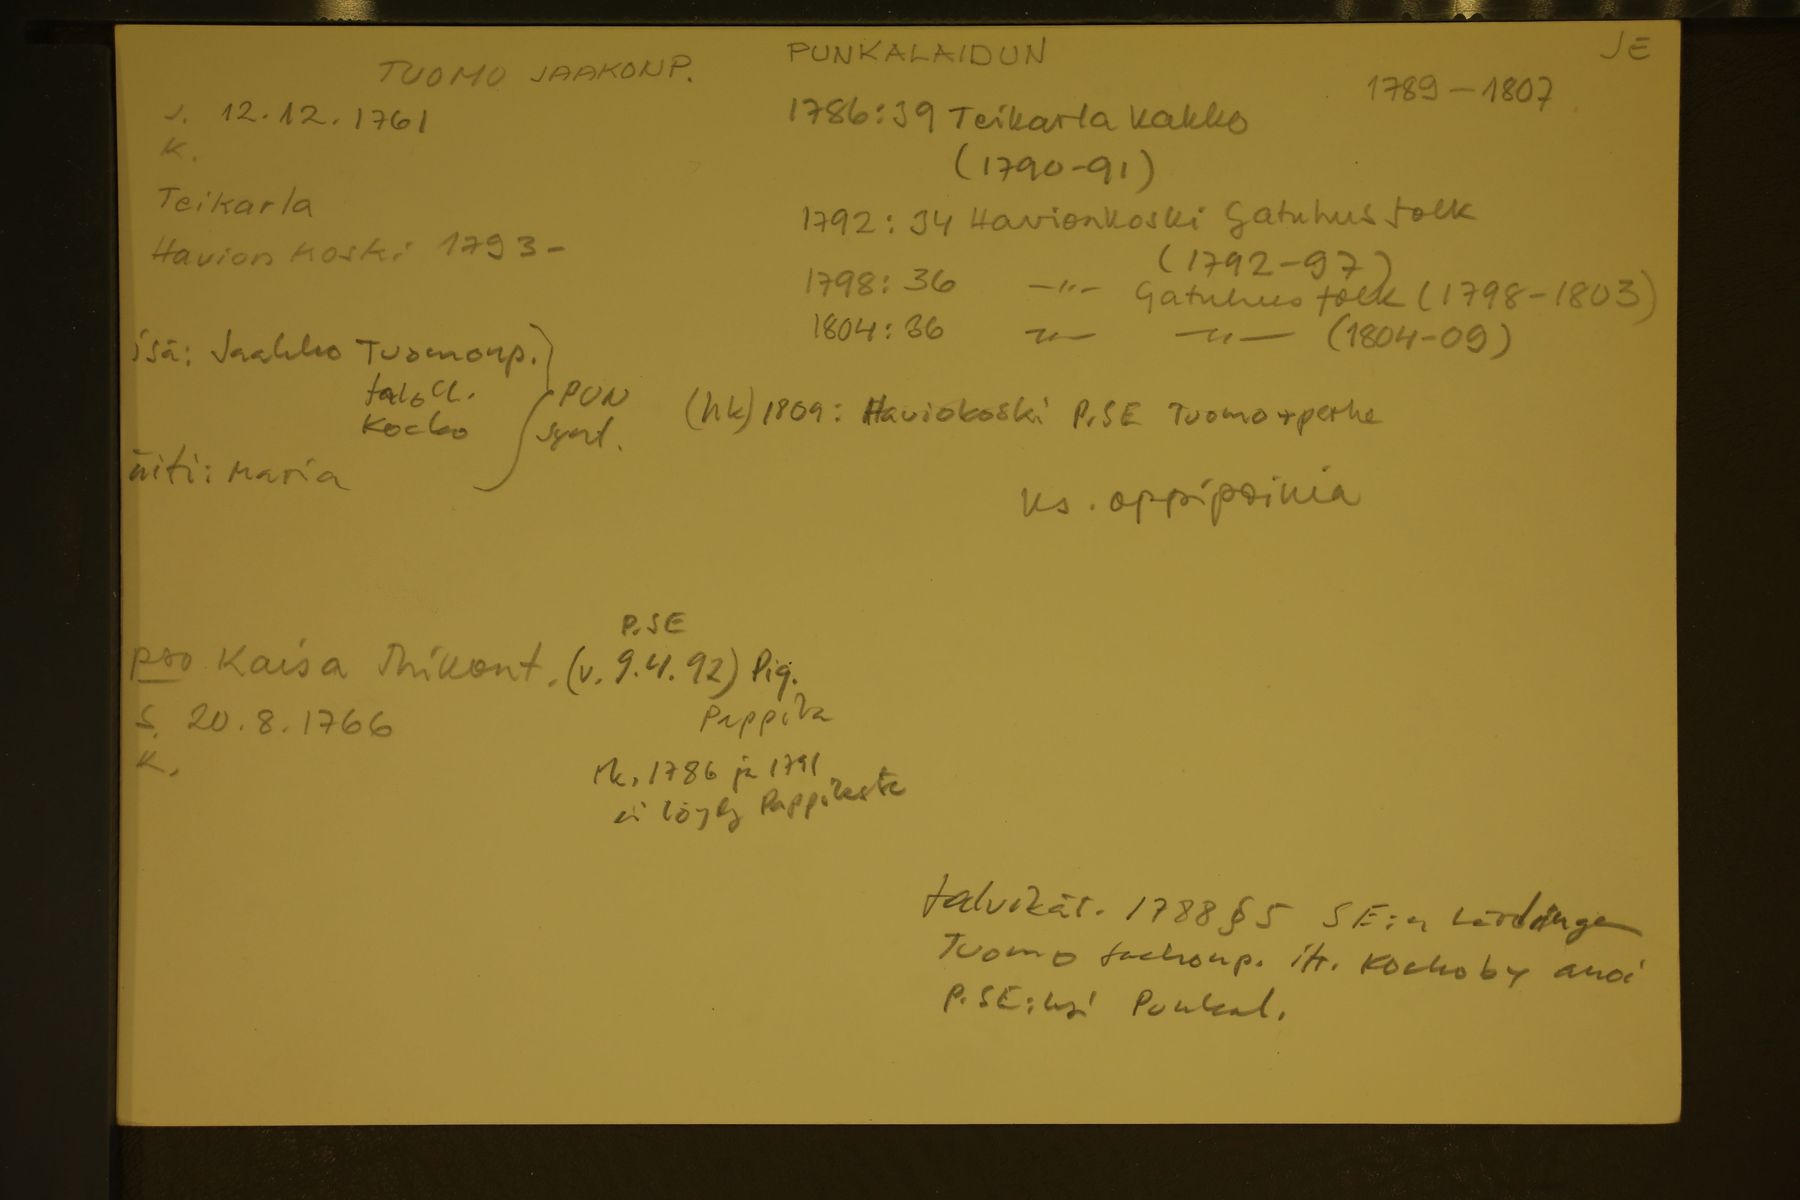 TUOMO JAAKONP.
PUNKALAIDUN
JE
1789-1807
s. 12.12.1761
K.
Teikarla
Havionkoski 1793-
1786:39 Teikarla Kakko
(1790-91)
1792:34 Havionkoski Gatuhusfolk
(1792-97)
1798:36 -"- Gatuhusfolk (1798-1803)
1804:36 -"- -"- (1804-09)
isä: Jaakko Tuomonp.
taloll.
Kocko
PUN
synt.
äiti: Maria
(hk) 1809: Haviokoski P.SE Tuomo+perhe
ks. oppipoikia
P.SE
pso Kaisa Mikont. (v. 9.4.92) Pig.
Pappila
s. 20.8.1766
K.
rk. 1786 ja 1791
ei löydy Pappilasta
talvikär. 1788 § 5 SE:n lärdinge
Tuomo Jackonp. it. Kockoby anoi
P.SE:ksi Punkal.